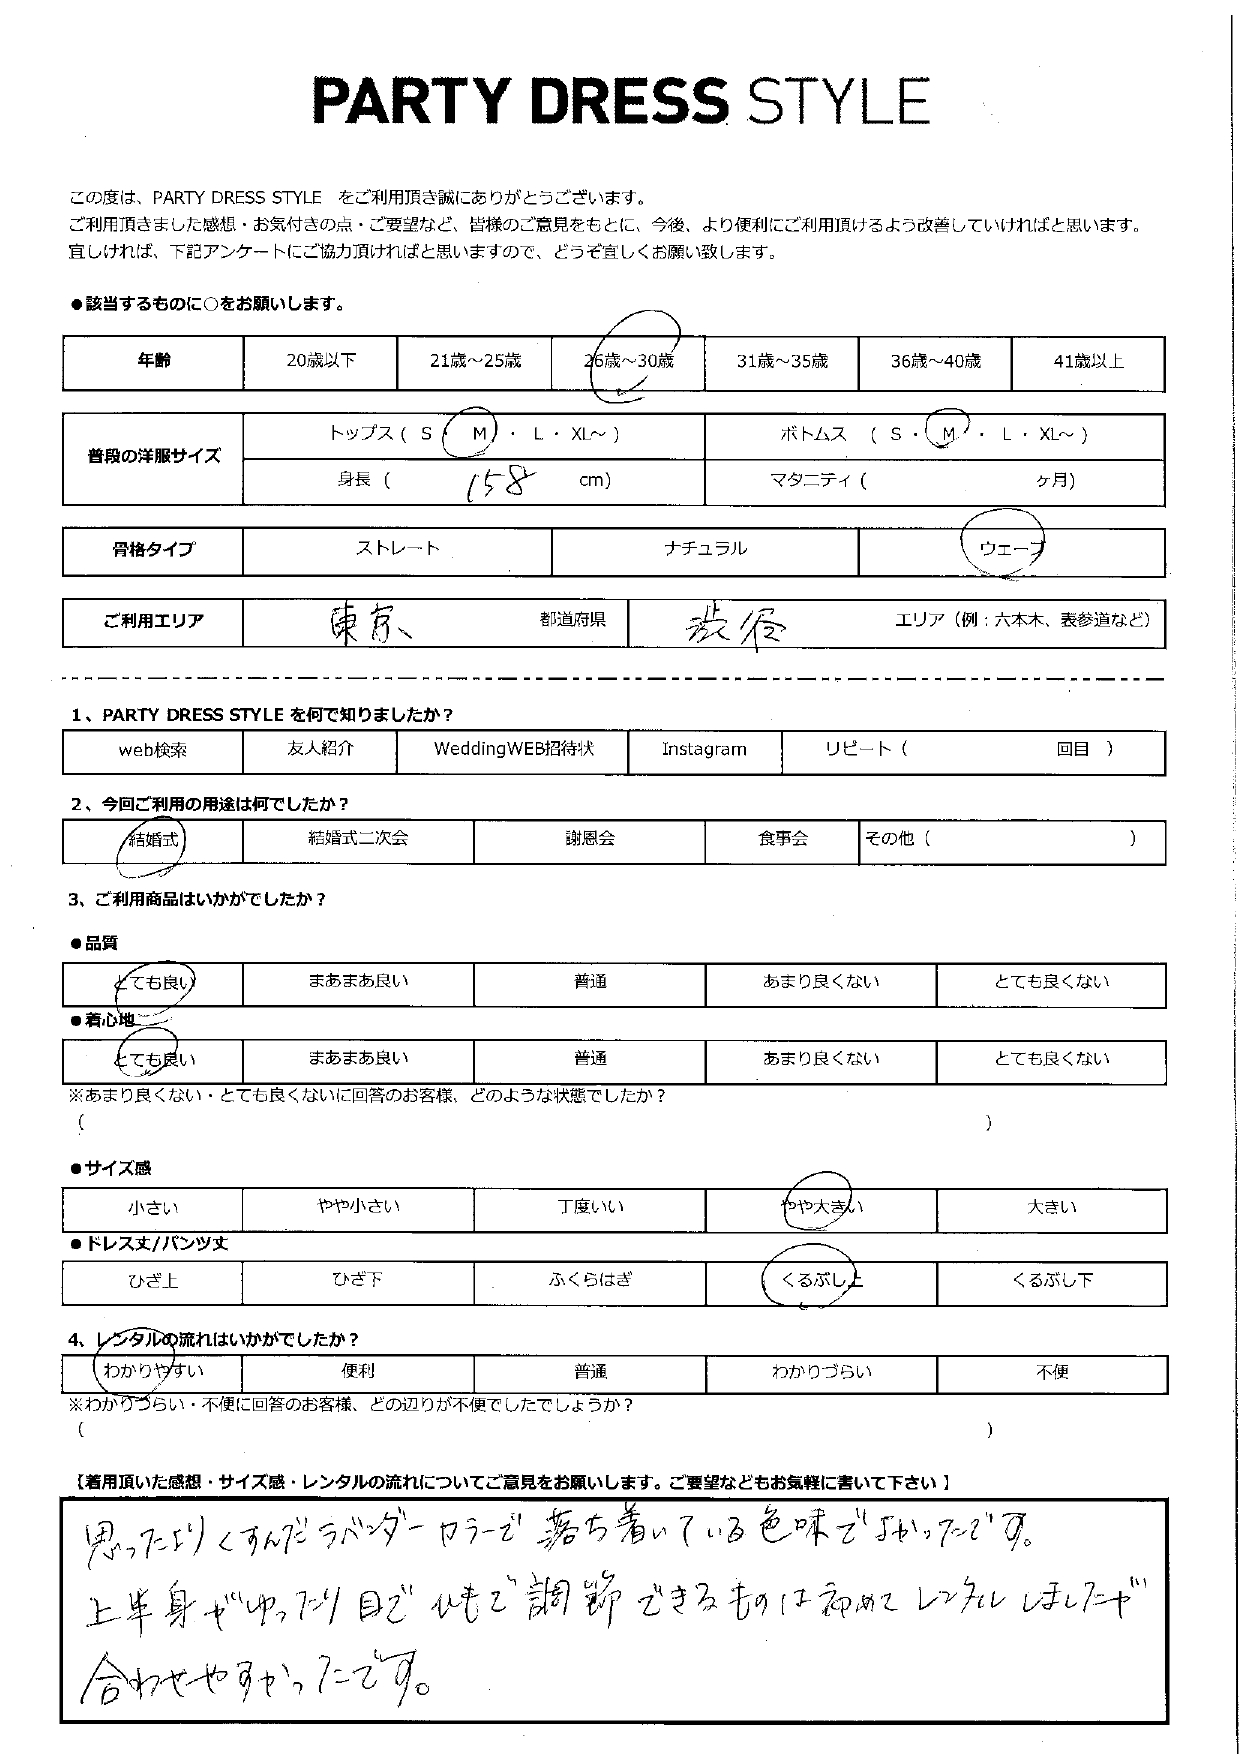 PARTY DRESS STYLE
この度は、PARTY DRESS STYLE をご利用頂き誠にありがとうございます。
ご利用頂きました感想・お気付きの点・ご要望など、皆様のご意見をもとに、今後、より便利にご利用頂けるよう改善していければと思います。
宜しければ、下記アンケートにご協力頂ければと思いますので、どうぞ宜しくお願い致します。
●該当するものに○をお願いします。
年齢 20歳以下 21歳～25歳 26歳～30歳 31歳～35歳 36歳～40歳 41歳以上
普段の洋服サイズ
トップス ( S ・ M ・ L ・ XL～ ) ボトムス ( S ・ M ・ L ・ XL～ )
身長 ( 158 cm) マタニティ ( ヶ月)
骨格タイプ ストレート ナチュラル ウェーブ
ご利用エリア 東京 都道府県 渋谷 エリア（例：六本木、表参道など）
1、PARTY DRESS STYLE を何で知りましたか？
web検索 友人紹介 WeddingWEB招待状 Instagram リピート ( 回目 )
2、今回ご利用の用途は何でしたか？
結婚式 結婚式二次会 謝恩会 食事会 その他 ( )
3、ご利用商品はいかがでしたか？
●品質
とても良い まあまあ良い 普通 あまり良くない とても良くない
●着心地
とても良い まあまあ良い 普通 あまり良くない とても良くない
※あまり良くない・とても良くないに回答のお客様、どのような状態でしたか？
( )
●サイズ感
小さい やや小さい 丁度いい やや大きい 大きい
●ドレス丈/パンツ丈
ひざ上 ひざ下 ふくらはぎ くるぶし上 くるぶし下
4、レンタルの流れはいかがでしたか？
わかりやすい 便利 普通 わかりづらい 不便
※わかりづらい・不便に回答のお客様、どの辺りが不便でしたでしょうか？
( )
【着用頂いた感想・サイズ感・レンタルの流れについてご意見をお願いします。ご要望などもお気軽に書いて下さい】
思ったよりくすんだラベンダーカラーで落ち着いている色味でよかったです。
上半身がゆったり目でひもで調節できるものは初めてレンタルしましたが
合わせやすかったです。